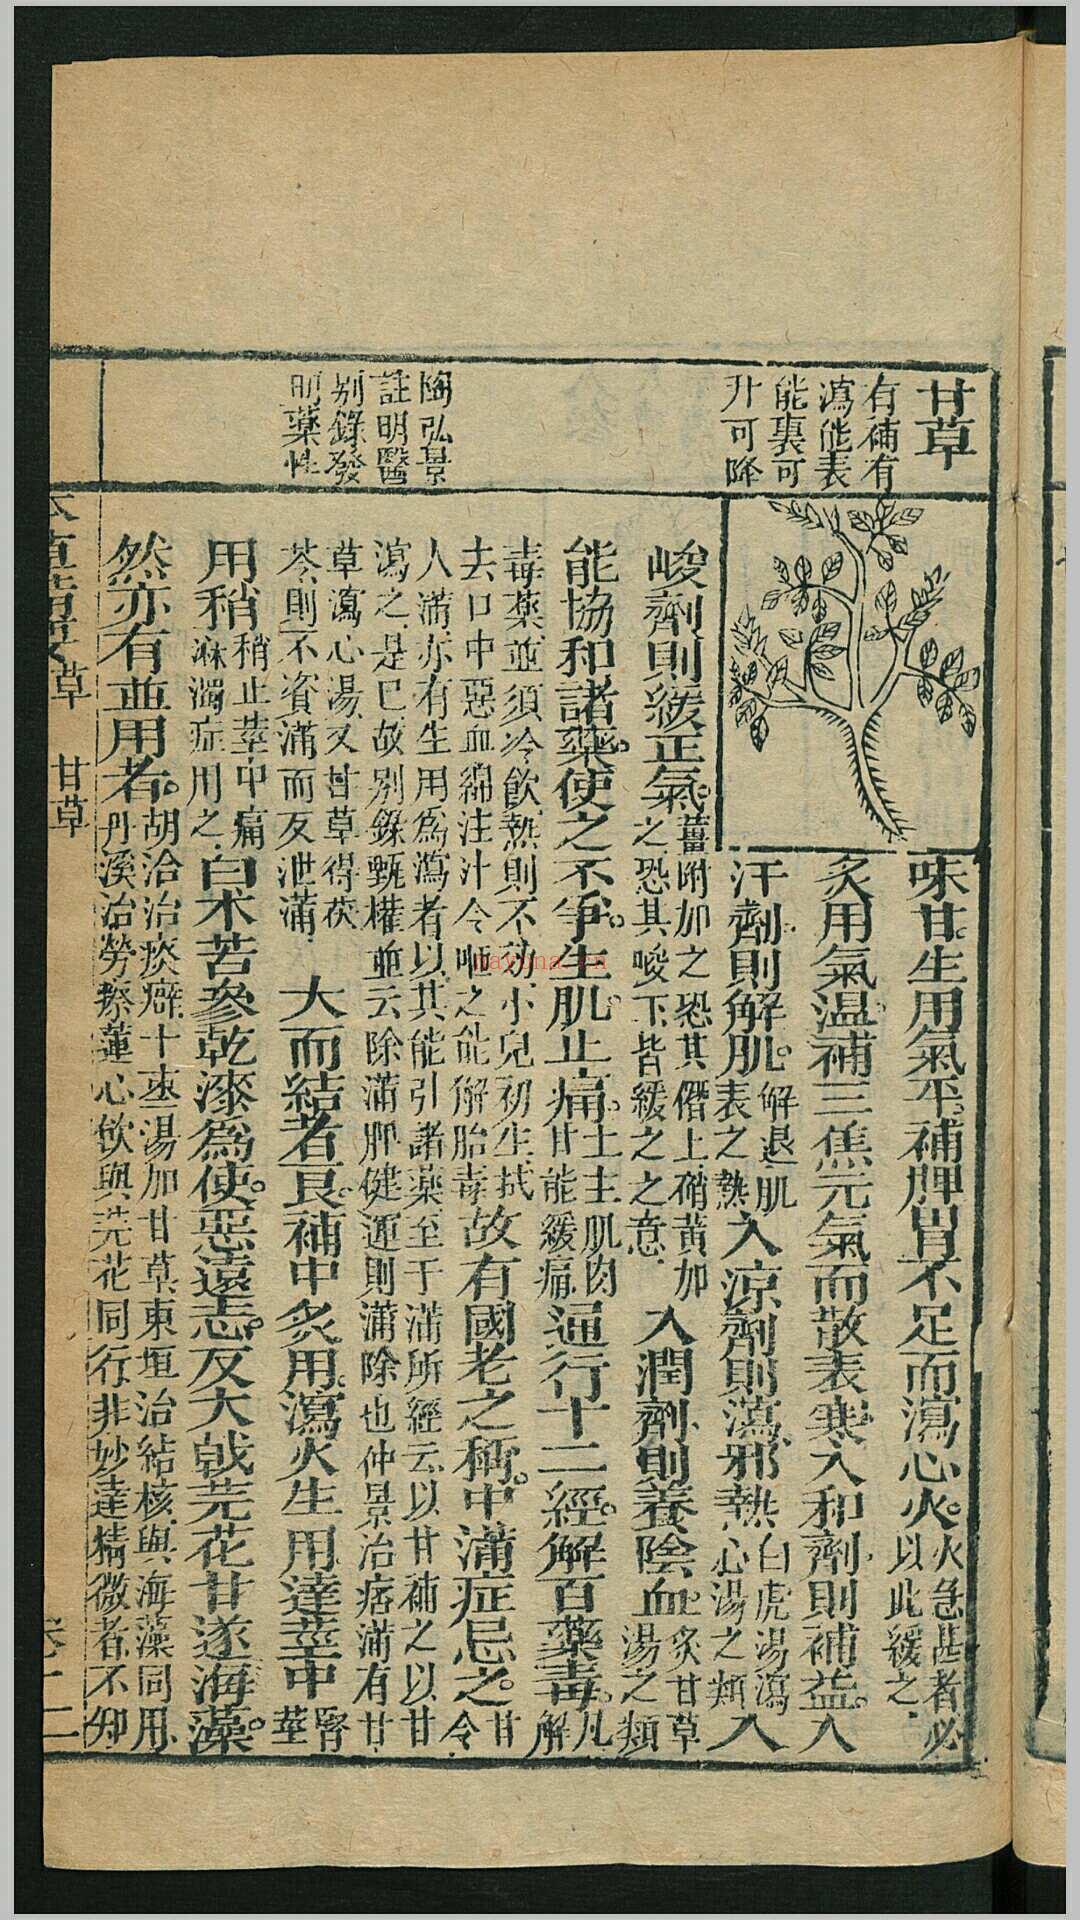 甘草
有補有
瀉能表
能裏可
升可降
陶弘景
註明醫
别錄發
明藥性
味甘。生用氣平。補脾胃不足而瀉心火。火急甚者必以此緩之。
炙用氣温。補三焦元氣而散表寒。入和劑則補益。入
汗劑則解肌。解退肌表之熱入涼劑則瀉邪熱。白虎湯瀉心湯之類入
峻劑則緩正氣。薑附加之恐其僭上硝黃加之恐其峻下皆緩之之意入潤劑則養陰血。炙甘草湯之類
能協和諸藥。使之不爭。生肌止痛。土主肌肉甘能緩痛通行十二經。解百藥毒。凡解
毒藥並須冷飲熱則不効小兒初生拭
去口中惡血綿注汁令咂之能解胎毒故有國老之稱。中滿症忌之。甘令
人滿亦有生用爲瀉者以其能引諸藥至于滿所經云以甘補之以甘
瀉之是已故别錄甄權並云除滿脾健運則滿除也仲景治痞滿有甘
草瀉心湯又甘草得茯
苓則不資滿而反泄滿
大而結者良。補中炙用。瀉火生用達莖中腎莖
用稍稍止莖中痛淋濁症用之白朮苦參乾漆爲使。惡遠志。反大戟芫花甘遂海藻。
然亦有並用者。胡洽治痰癖十棗湯加甘草東垣治結核與海藻同用丹溪治勞瘵蓮心飲與芫花同行非妙達精微者不卹
草　甘草
卷一　二